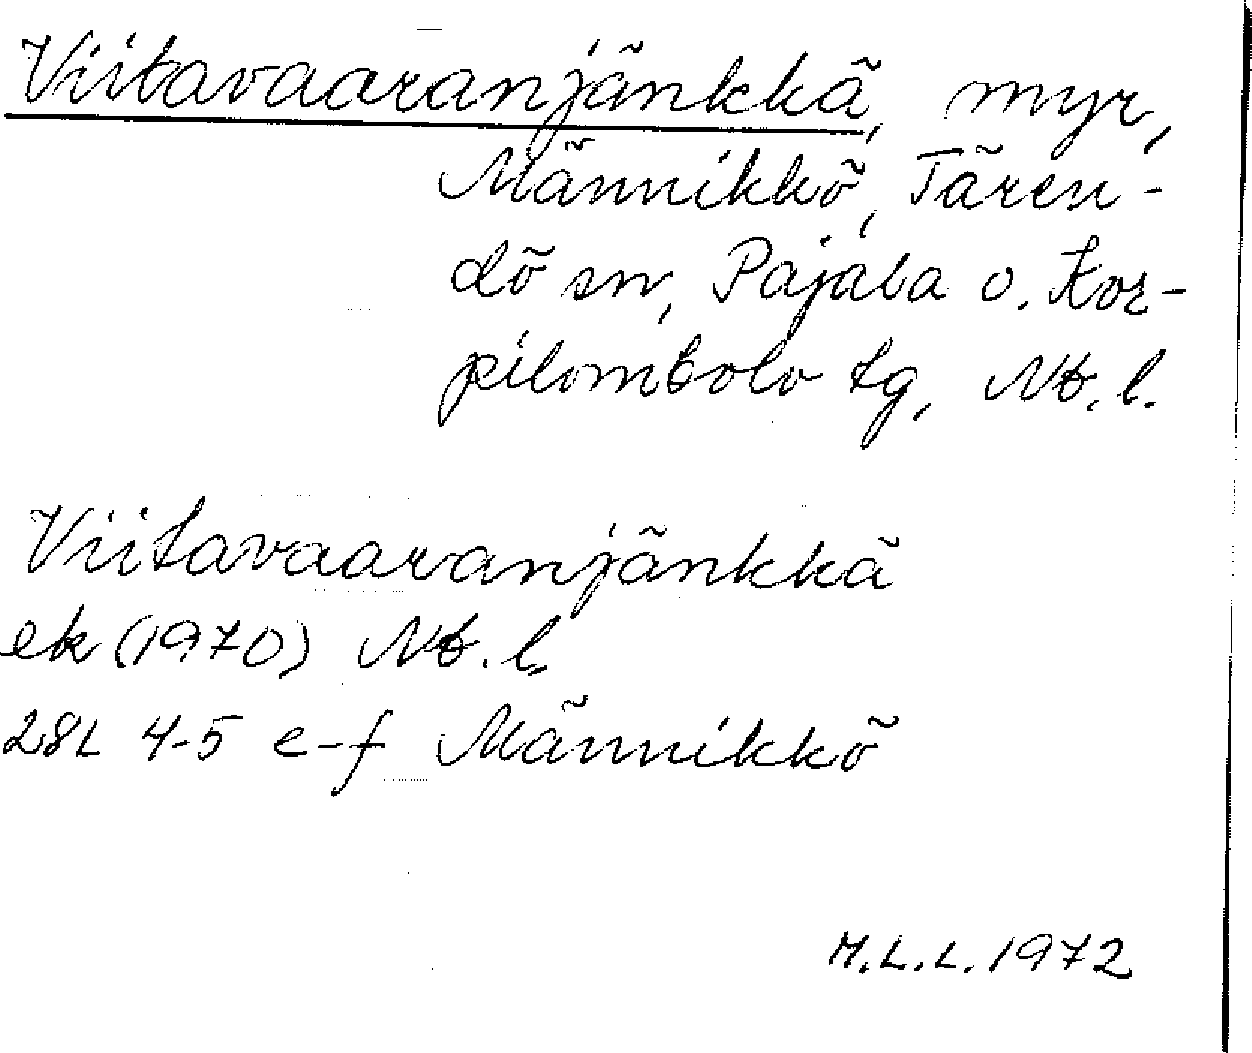 Viitavaaranjänkkä, myr,
Männikkö, Tären-
dö sn, Pajala o. Kor-
pilombolo tg, Nb. l.
Viitavaaranjänkkä
ek (1970) Nb. l.
28L 4-5 e-f Männikkö
M.L.L. 1972